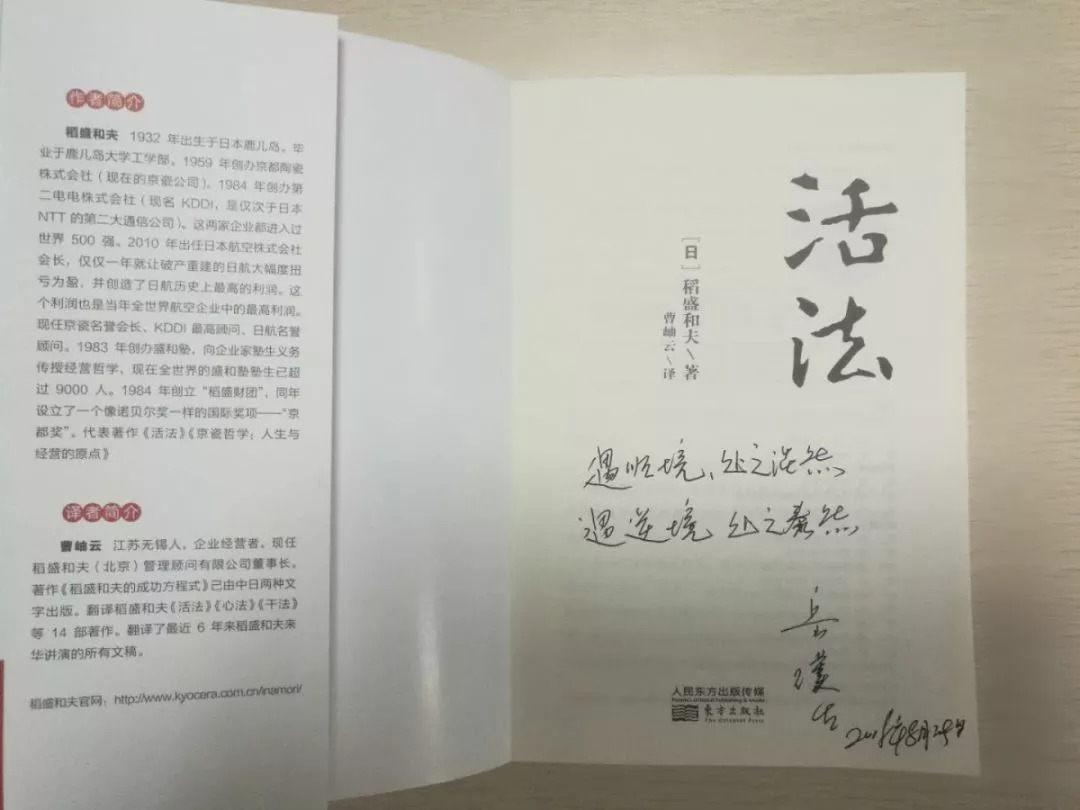 作者简介
稻盛和夫 1932 年出生于日本鹿儿岛。毕
业于鹿儿岛大学工学部。1959 年创办京都陶瓷
株式会社（现在的京瓷公司）。1984 年创办第
二电电株式会社（现名 KDDI，是仅次于日本
NTT 的第二大通信公司）。这两家企业都进入过
世界 500 强。2010 年出任日本航空株式会社
会长，仅仅一年就让破产重建的日航大幅度扭
亏为盈，并创造了日航历史上最高的利润。这
个利润也是当年全世界航空企业中的最高利润。
现任京瓷名誉会长、KDDI 最高顾问、日航名誉
顾问。1983 年创办盛和塾，向企业家塾生义务
传授经营哲学，现在全世界的盛和塾塾生已超
过 9000 人。1984 年创立“稻盛财团”，同年
设立了一个像诺贝尔奖一样的国际奖项——“京
都奖”。代表著作《活法》《京瓷哲学：人生与
经营的原点》
译者简介
曹岫云 江苏无锡人，企业经营者。现任
稻盛和夫（北京）管理顾问有限公司董事长。
著作《稻盛和夫的成功方程式》已由中日两种文
字出版。翻译稻盛和夫《活法》《心法》《干法》
等 14 部著作。翻译了最近 6 年来稻盛和夫来
华讲演的所有文稿。
稻盛和夫官网：http://www.kyocera.com.cn/inamori/
活法
［日］稻盛和夫\著
曹岫云\译
遇顺境、处之淡然
遇逆境、处之泰然
人民东方出版传媒
People's Oriental Publishing & Media
东方出版社
The Oriental Press